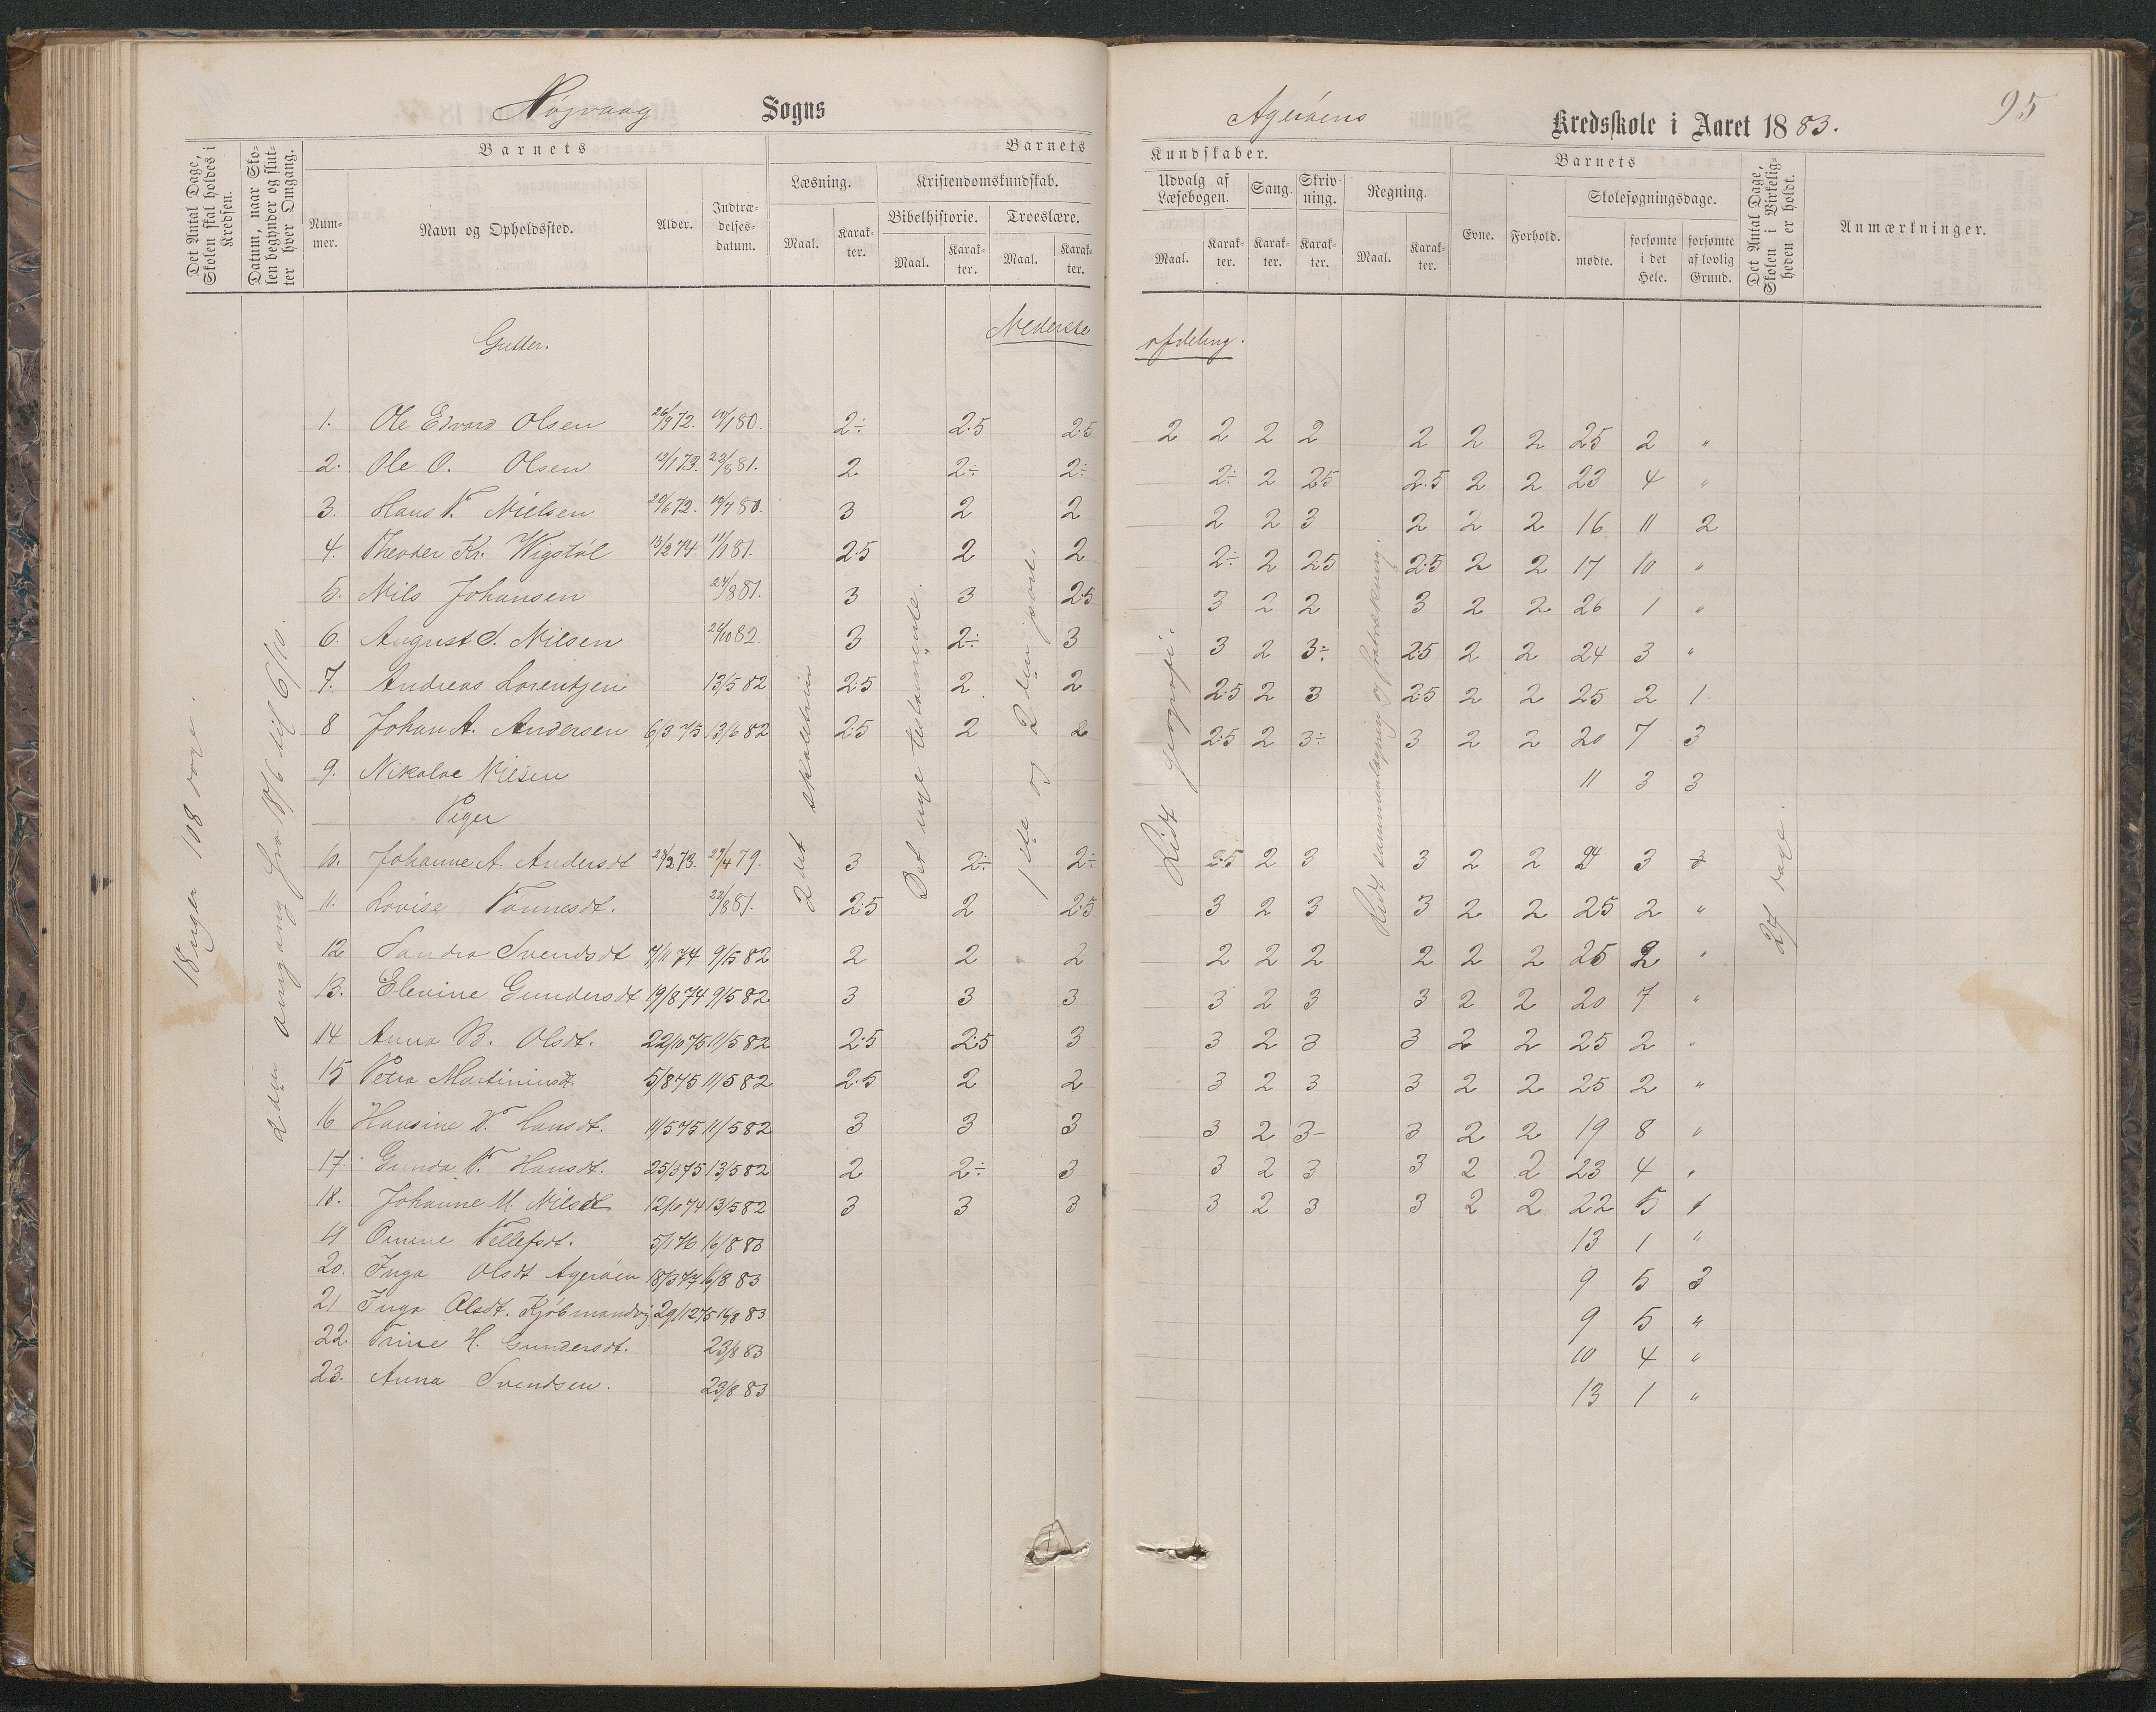 Højvaag Sogns Agerøens Kredsskole i Aaret 1883. 95
Det Antal Dage, Skolen skal holdes i Kredsen.
Datum, naar Skolen begynder og slutter hver Omgang.
Barnets
Nummer. Navn og Opholdssted. Alder. Indtrædelsesdatum.
Barnets Kundskaber.
Læsning. Kristendomskundskab. Udvalg af Læsebogen. Sang. Skrivning. Regning.
Bibelhistorie. Troeslære.
Maal. Karakter. Maal. Karakter. Maal. Karakter. Maal. Karakter. Karakter. Karakter. Maal. Karakter.
Barnets
Evne. Forhold. Skolesøgningsdage.
mødte. forsømte i det Hele. forsømte af lovlig Grund.
Det Antal Dage, Skolen i Virkeligheden er holdt.
Anmærkninger.
Gutter. Nederste afdeling.
18 uger 108 dage.
2den omgang fra 18/6 til 6/10.
2det skoletrin
Det nye testamente.
1ste og 2den part.
Lidt geografi.
Lidt sammenlægning og fratrækning.
27 dage.
1. Ole Edvard Olsen 26/9 72. 10/1 80. 2÷ 2.5 2.5 2 2 2 2 2 2 2 25 2 "
2. Ole O. Olsen 12/1 73. 23/8 81. 2 2÷ 2÷ 2÷ 2 2.5 2.5 2 2 23 4 "
3. Hans T. Nielsen 29/6 72. 10/7 80. 3 2 2 2 2 3 2 2 2 16 11 2
4. Theoder Kr. Wigstøl 13/2 74 11/1 81. 2.5 2 2 2÷ 2 2.5 2.5 2 2 17 10 "
5. Nils Johansen 24/8 81. 3 3 2.5 3 2 2 3 2 2 26 1 "
6. August S. Nilsen 26/10 82. 3 2÷ 3 3 2 3÷ 2.5 2 2 24 3 "
7. Andreas Lorentzen 13/5 82 2.5 2 2 2.5 2 3 2.5 2 2 25 2 1
8 Johan A. Andersen 6/3 75 13/6 82 2.5 2 2 2.5 2 3÷ 3 2 2 20 7 3
9. Nikolae Nilsen 11 3 3
Piger
10. Johanne A. Andersdt 24/2 73. 29/4 79. 3 2÷ 2÷ 2.5 2 3 3 2 2 24 3 3
11. Lovise Tønnesdt. 23/8 81. 2.5 2 2.5 3 2 3 3 2 2 25 2 "
12 Sandra Svendsdt 7/11 74 9/5 82 2 2 2 2 2 2 2 2 2 25 2 "
13. Elevine Gundersdt 19/8 74 9/5 82 3 3 3 3 2 3 3 2 2 20 7 "
14 Anna B. Olsdt. 22/10 75 11/5 82 2.5 2.5 3 3 2 3 3 2 2 25 2 "
15 Petra Martininsdt. 5/8 75 11/5 82 2.5 2 2 3 2 3 3 2 2 25 2 "
16 Hansine T. Hansdt. 11/5 75 11/5 82 3 3 3 3 2 3- 3 2 2 19 8 "
17. Gunda T. Hansdt. 25/3 75 13/5 82 2 2÷ 3 3 2 3 3 2 2 23 4 "
18. Johanne M. Nilsdt 12/10 74 13/5 82 3 3 3 3 2 3 3 2 2 22 5 1
19 Omine Tellefsdt. 5/1 76 16/8 83 13 1 "
20. Inga Olsdt Agerøen 18/3 77 16/8 83 9 5 3
21 Inga Olsdt. Kjøbmandvig 29/12 75 16/8 83 9 5 "
22. Trine H. Gundersdt. 23/8 83 10 4 "
23. Anna Svendsen. 23/8 83 13 1 "